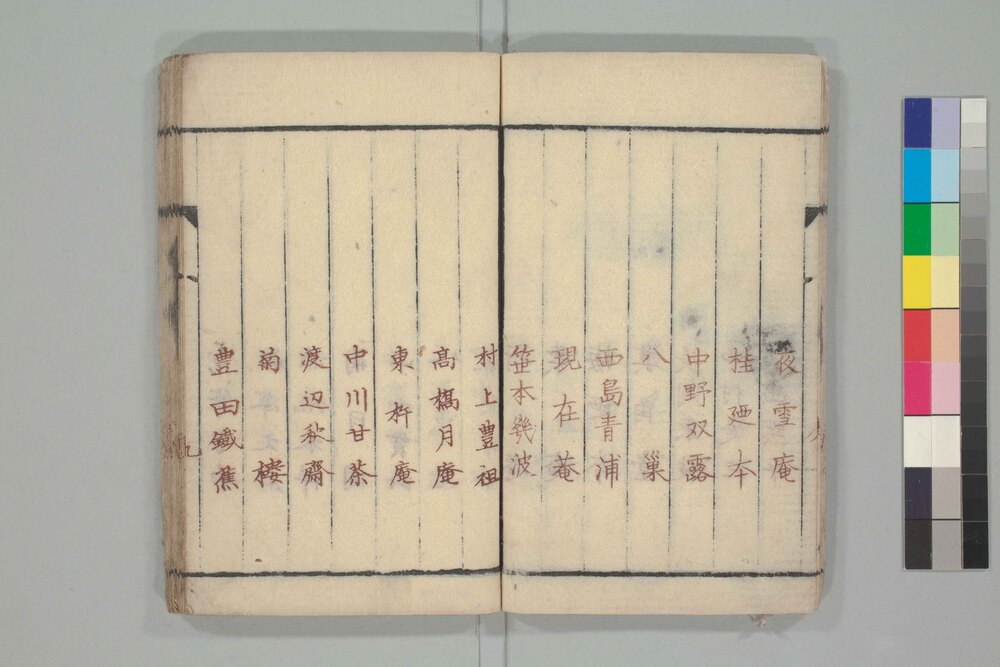 夜雪庵
桂廼本
中野双露
八巣
西島青浦
現在菴
笹本幾波
村上豊祖
高橋月庵
東杵庵
中川甘茶
渡辺秋齋
菊楼
豊田鐵蕉
九